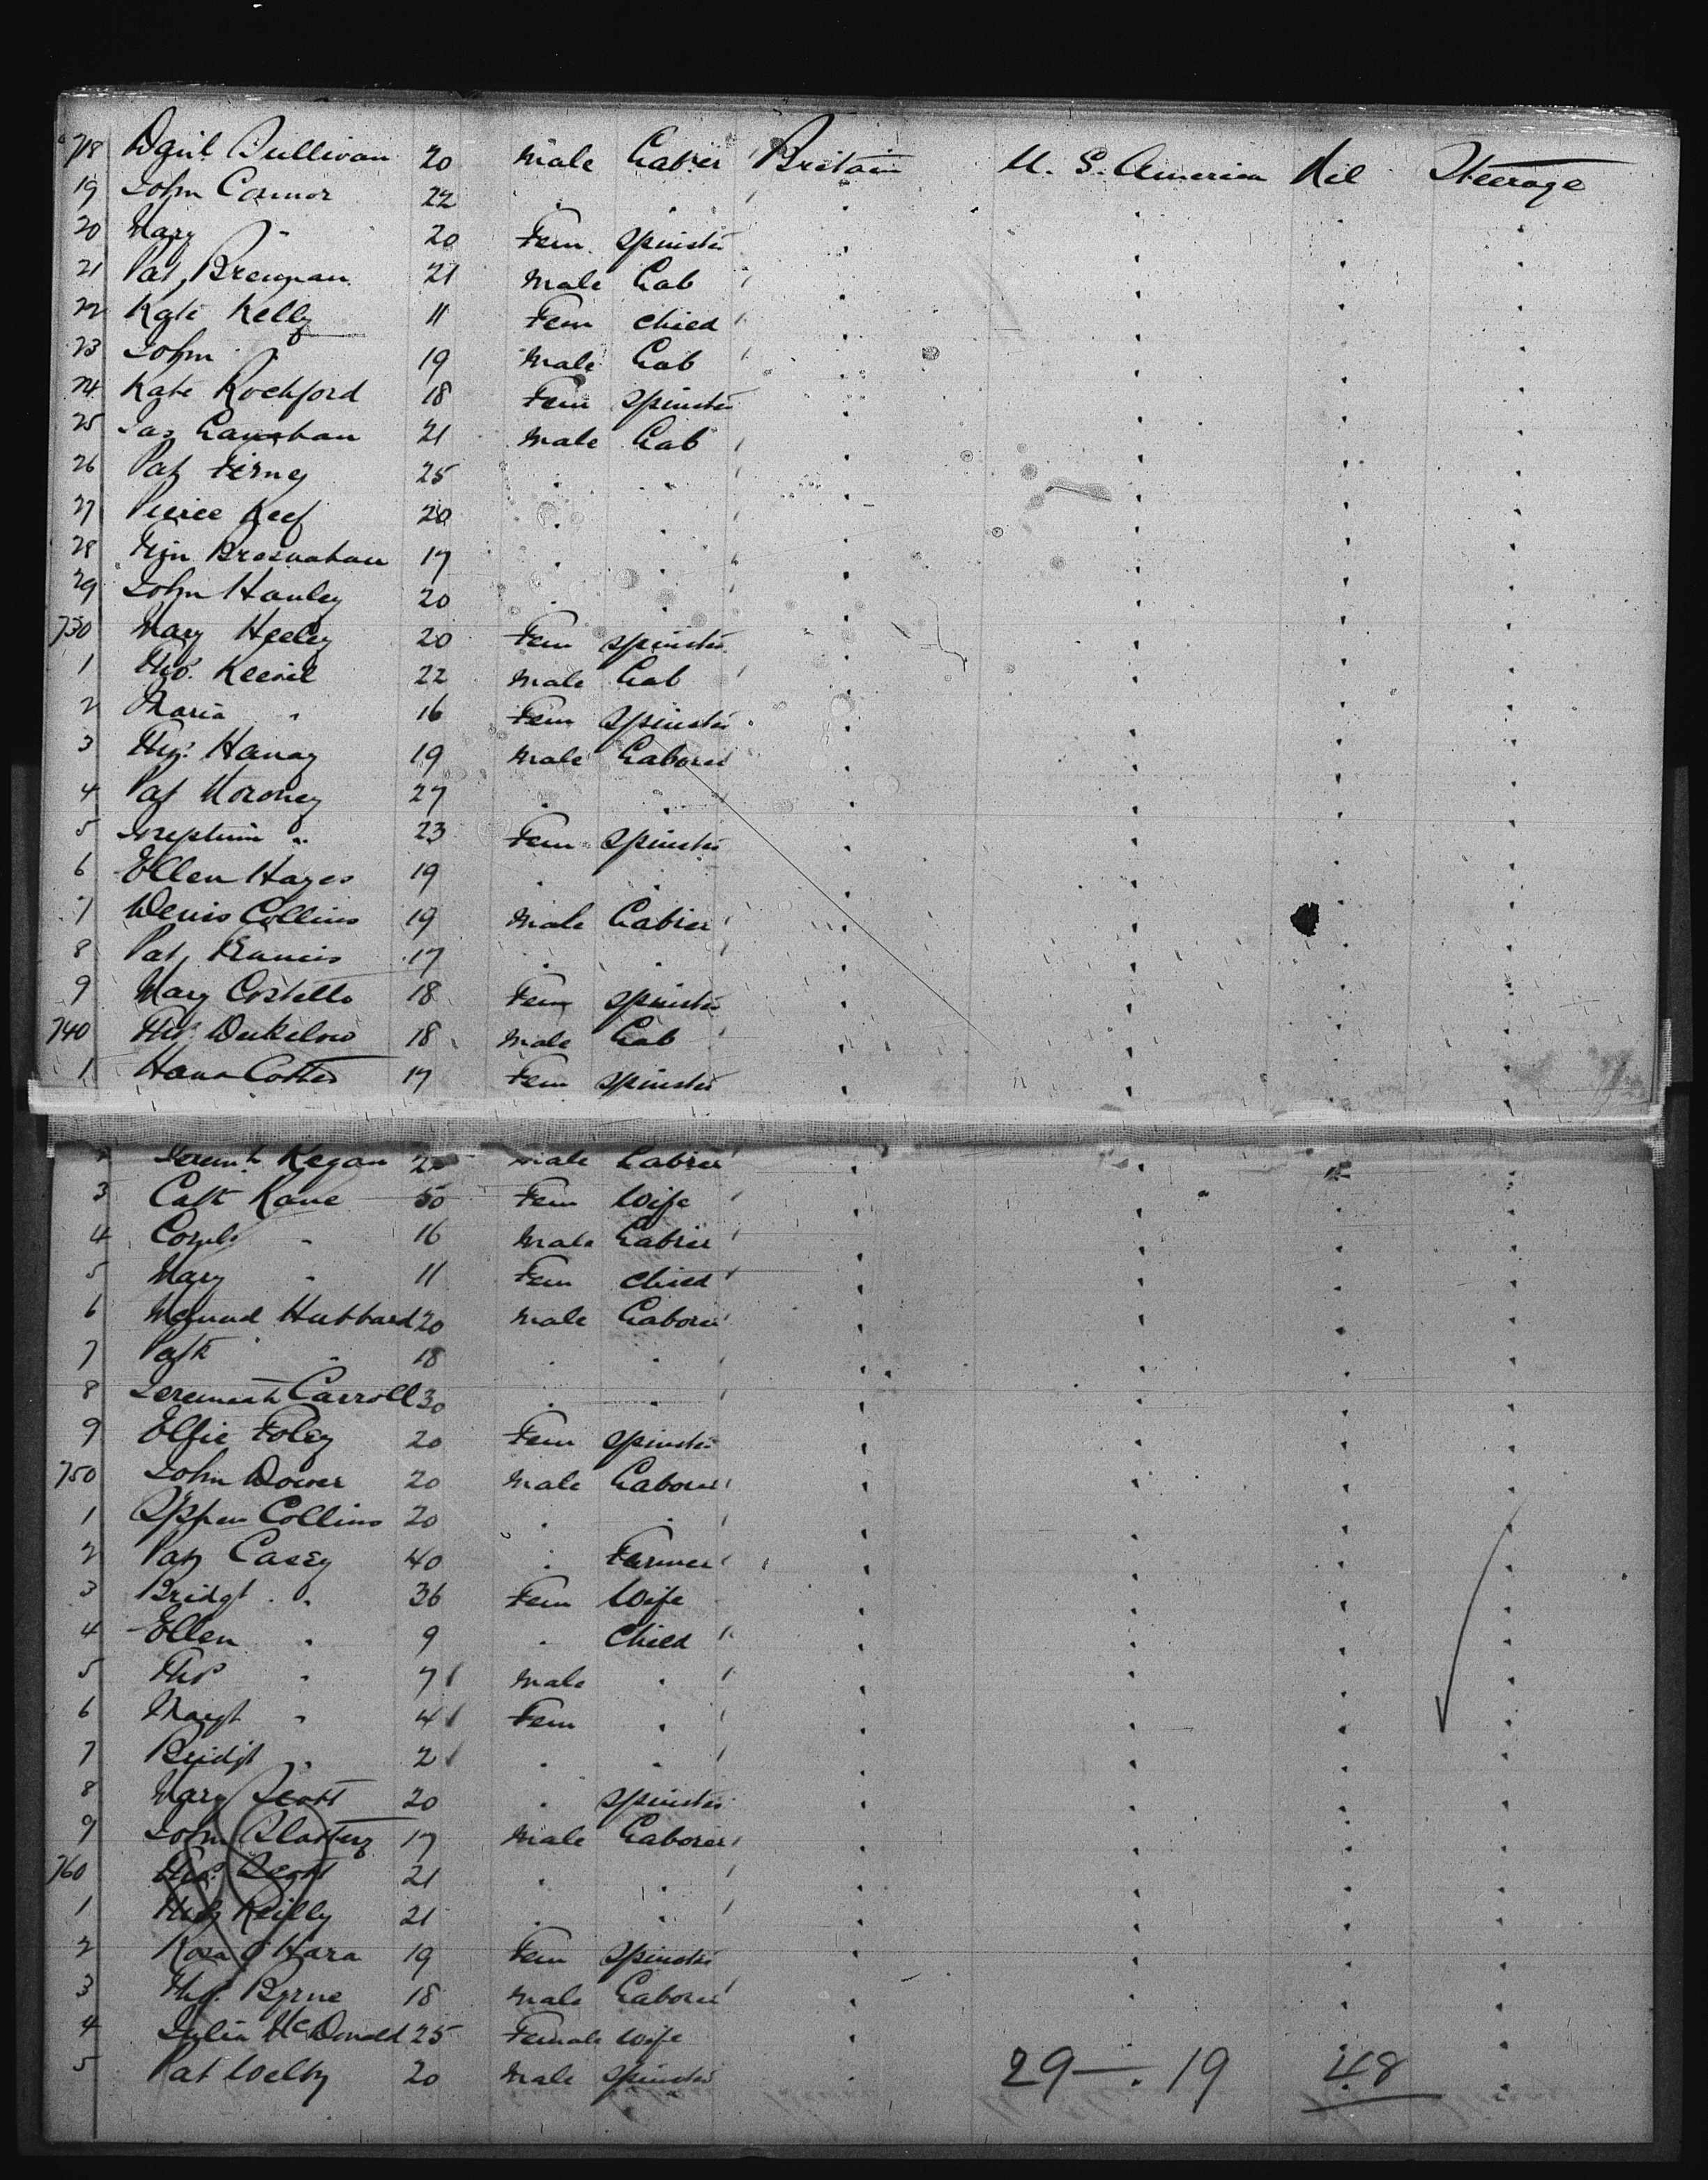 718 Danl. Sullivan 20 Male Labrer Britain U. S. America Nil Steerage
19 John Connor 22 . .
20 Mary " 20 Fem. Spinster
21 Pat Brennan 21 Male Lab
22 Kate Kelly 11 Fem Child
23 John " 19 Male Lab
24 Kate Rochford 18 Fem Spinster
25 Jas 21 Male Lab
26 Pat Tierney 25 . .
27 Pierce Keef 20 . .
28 Tim Brosnahan 17 . .
29 John Hanley 20 . .
730 Mary Heeley 20 Fem Spinster
1 Thos. 22 Male Lab
2 Maria " 16 Fem Spinster
3 Thos. 19 Male Laborer
4 Pat Moroney 27 . .
5 " 23 Fem Spinster
6 Ellen Hayes 19 . .
7 Denis Collins 19 Male Labrer
8 Pat Francis 17 . .
9 Mary Costello 18 Fem Spinster
740 Thos. Dukelow 18 Male Lab
1 Hana Cotter 17 Fem Spinster
2 Jeremh. Regan Male Labrer
3 Cath Kane 50 Fem Wife
4 Cornls " 16 Male Labrer
5 Mary " 11 Fem Child
6 Hubbard 20 Male Laborer
7 Patk " 18 . .
8 Jeremiah Carroll 30 . .
9 Foley 20 Fem Spinster
750 John Dower 20 Male Laborer
1 Collins 20 . .
2 Pat Casey 40 . Farmer
3 Bridgt " 36 Fem Wife
4 Ellen " 9 . Child
5 Thos " 7 Male .
6 Margt " 4 Fem .
7 Bridgt " 2 . .
8 Mary Scott 20 . Spinster
9 John Slattery 17 Male Laborer
760 Thos. Scott 21 . .
1 Hugh Reilly 21 . .
2 Rosa O'Hara 19 Fem Spinster
3 Thos. Byrne 18 Male Laborer
4 Julia McDonald 25 Female Wife
5 Pat Welby 20 Male Spinster
29 — . 19 48